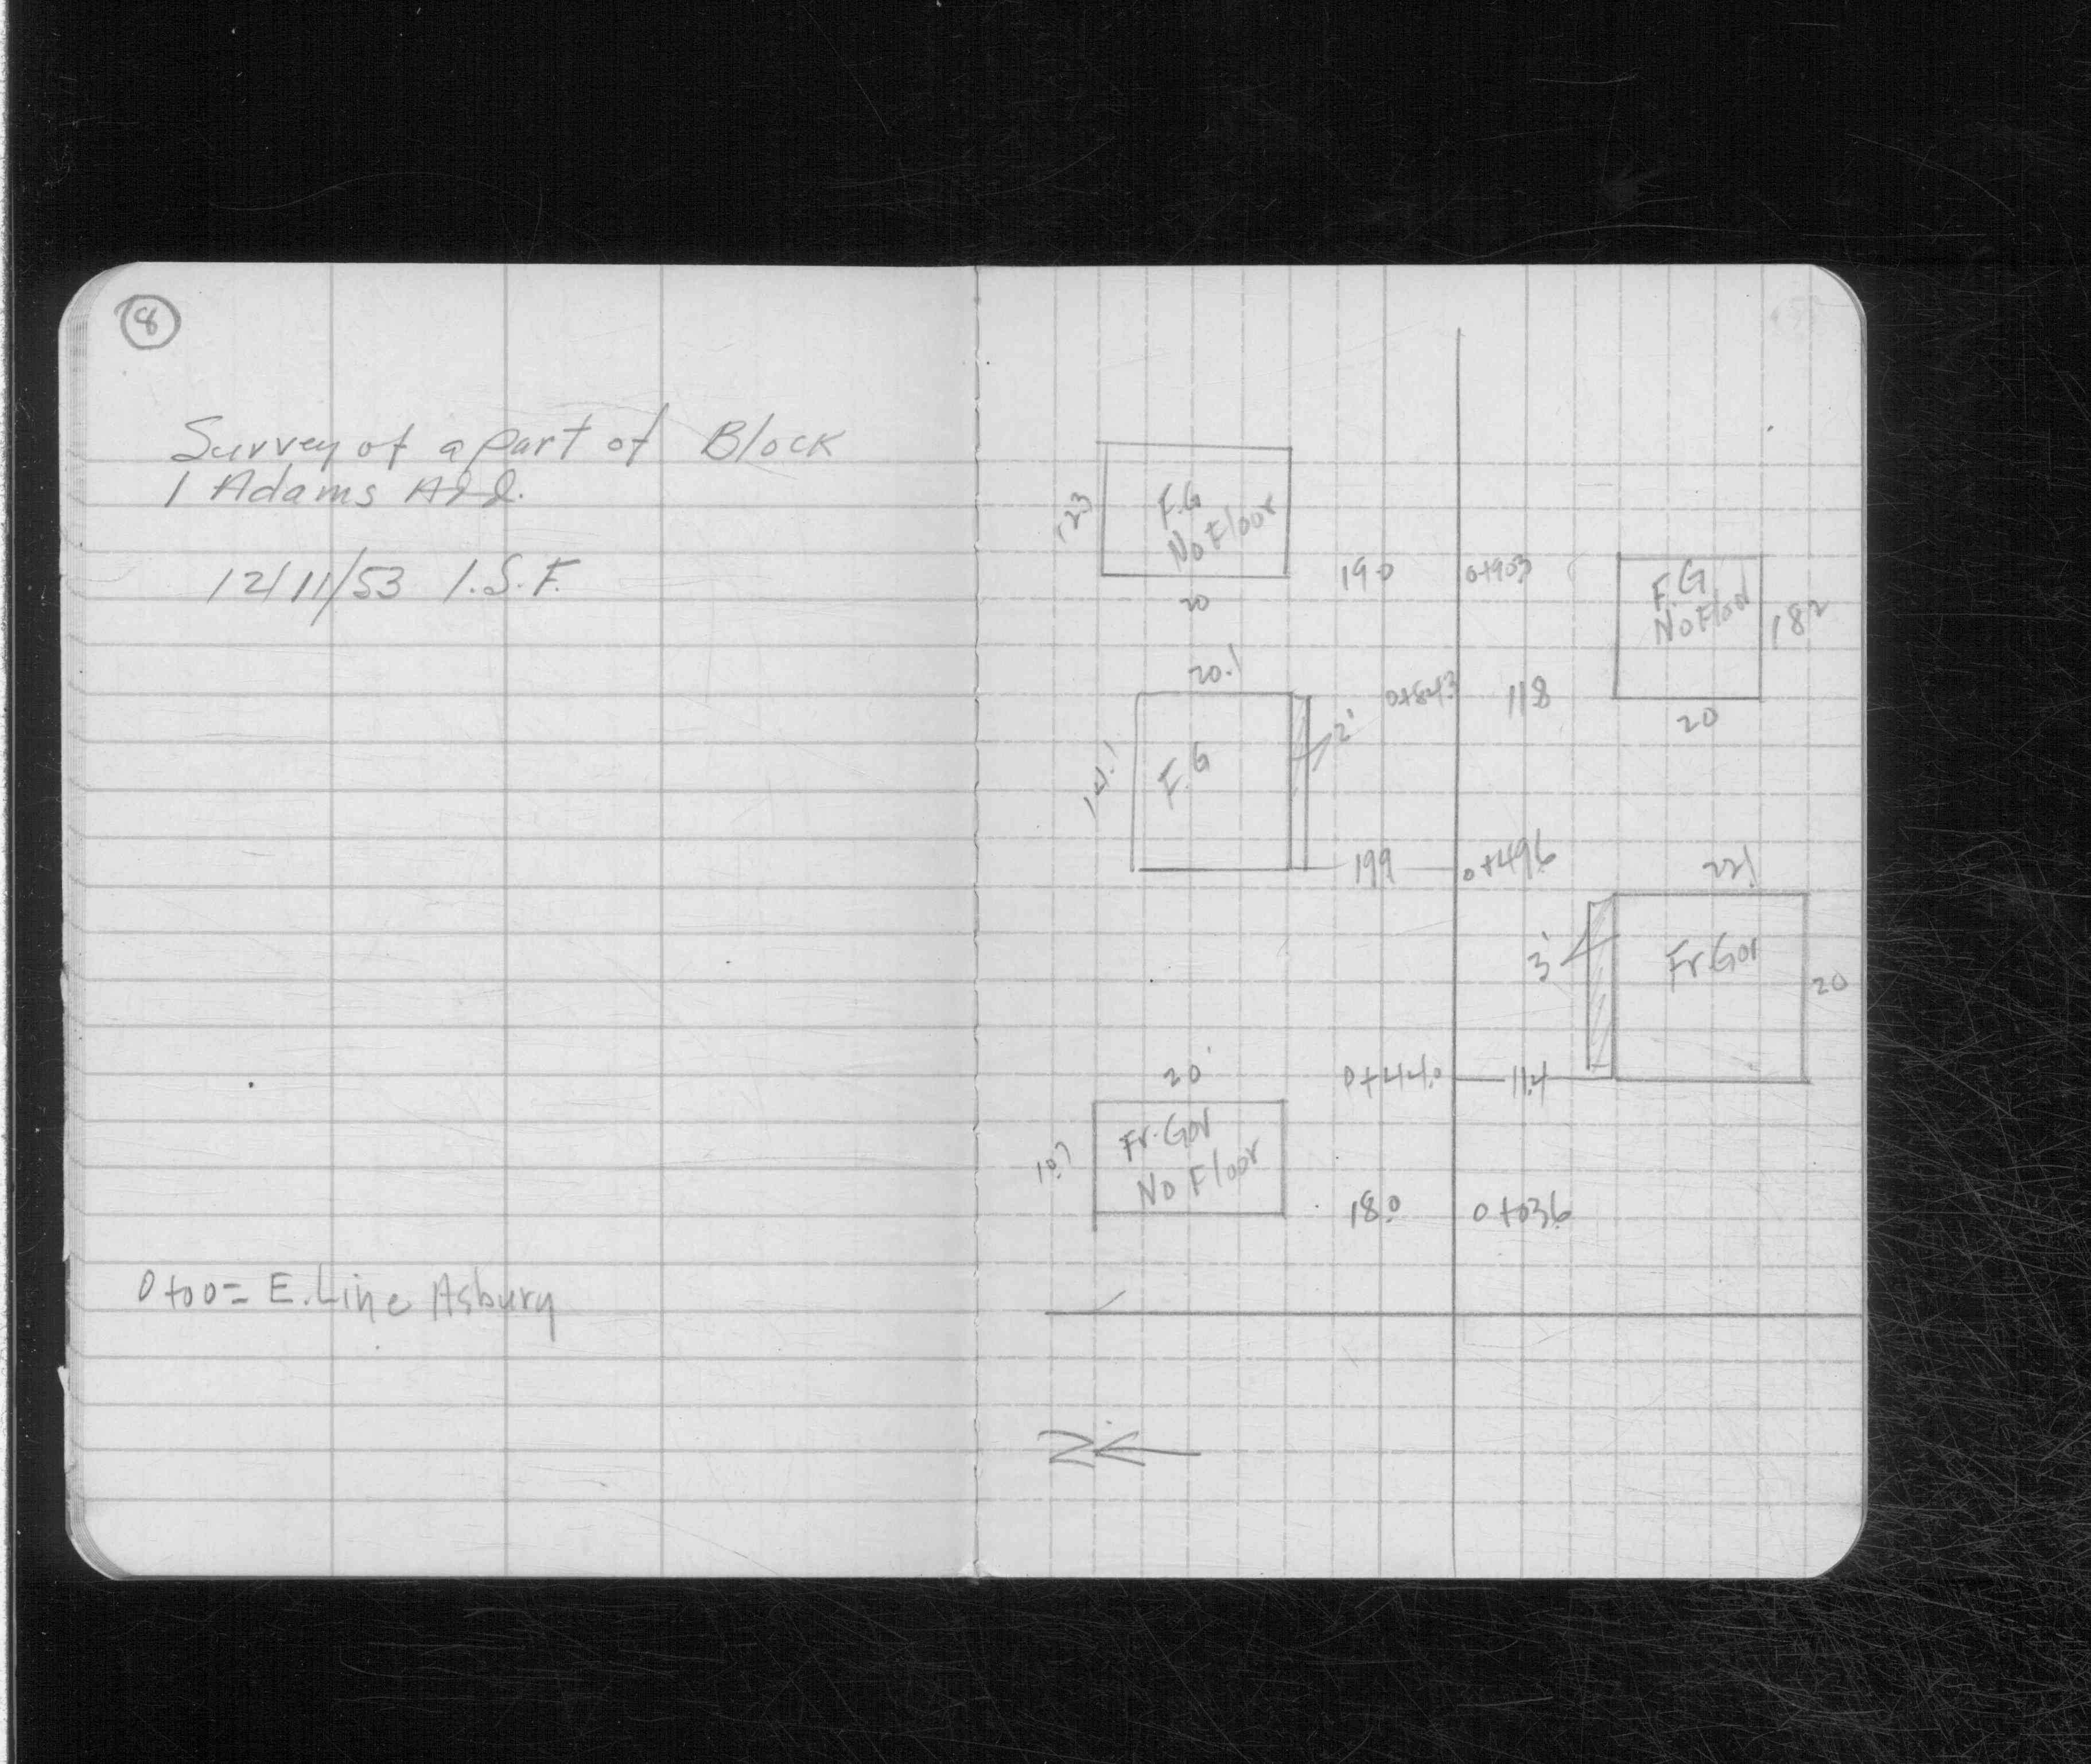 8
Survey of a part of Block
1 Adams Add.
12/11/53 I.S.F.
0+00= E. Line Asbury
F.G
No Floor
20
19.0
0+90.3
F.G
No Floor
18.2
20
20.1
0+84.3
11.8
F.G
2'
19.9
0+49.6
22.1
3'
Fr. Gar
20
0+44.0
11.4
20'
Fr. Gar
No Floor
10.7
18.0
0+03.6
N